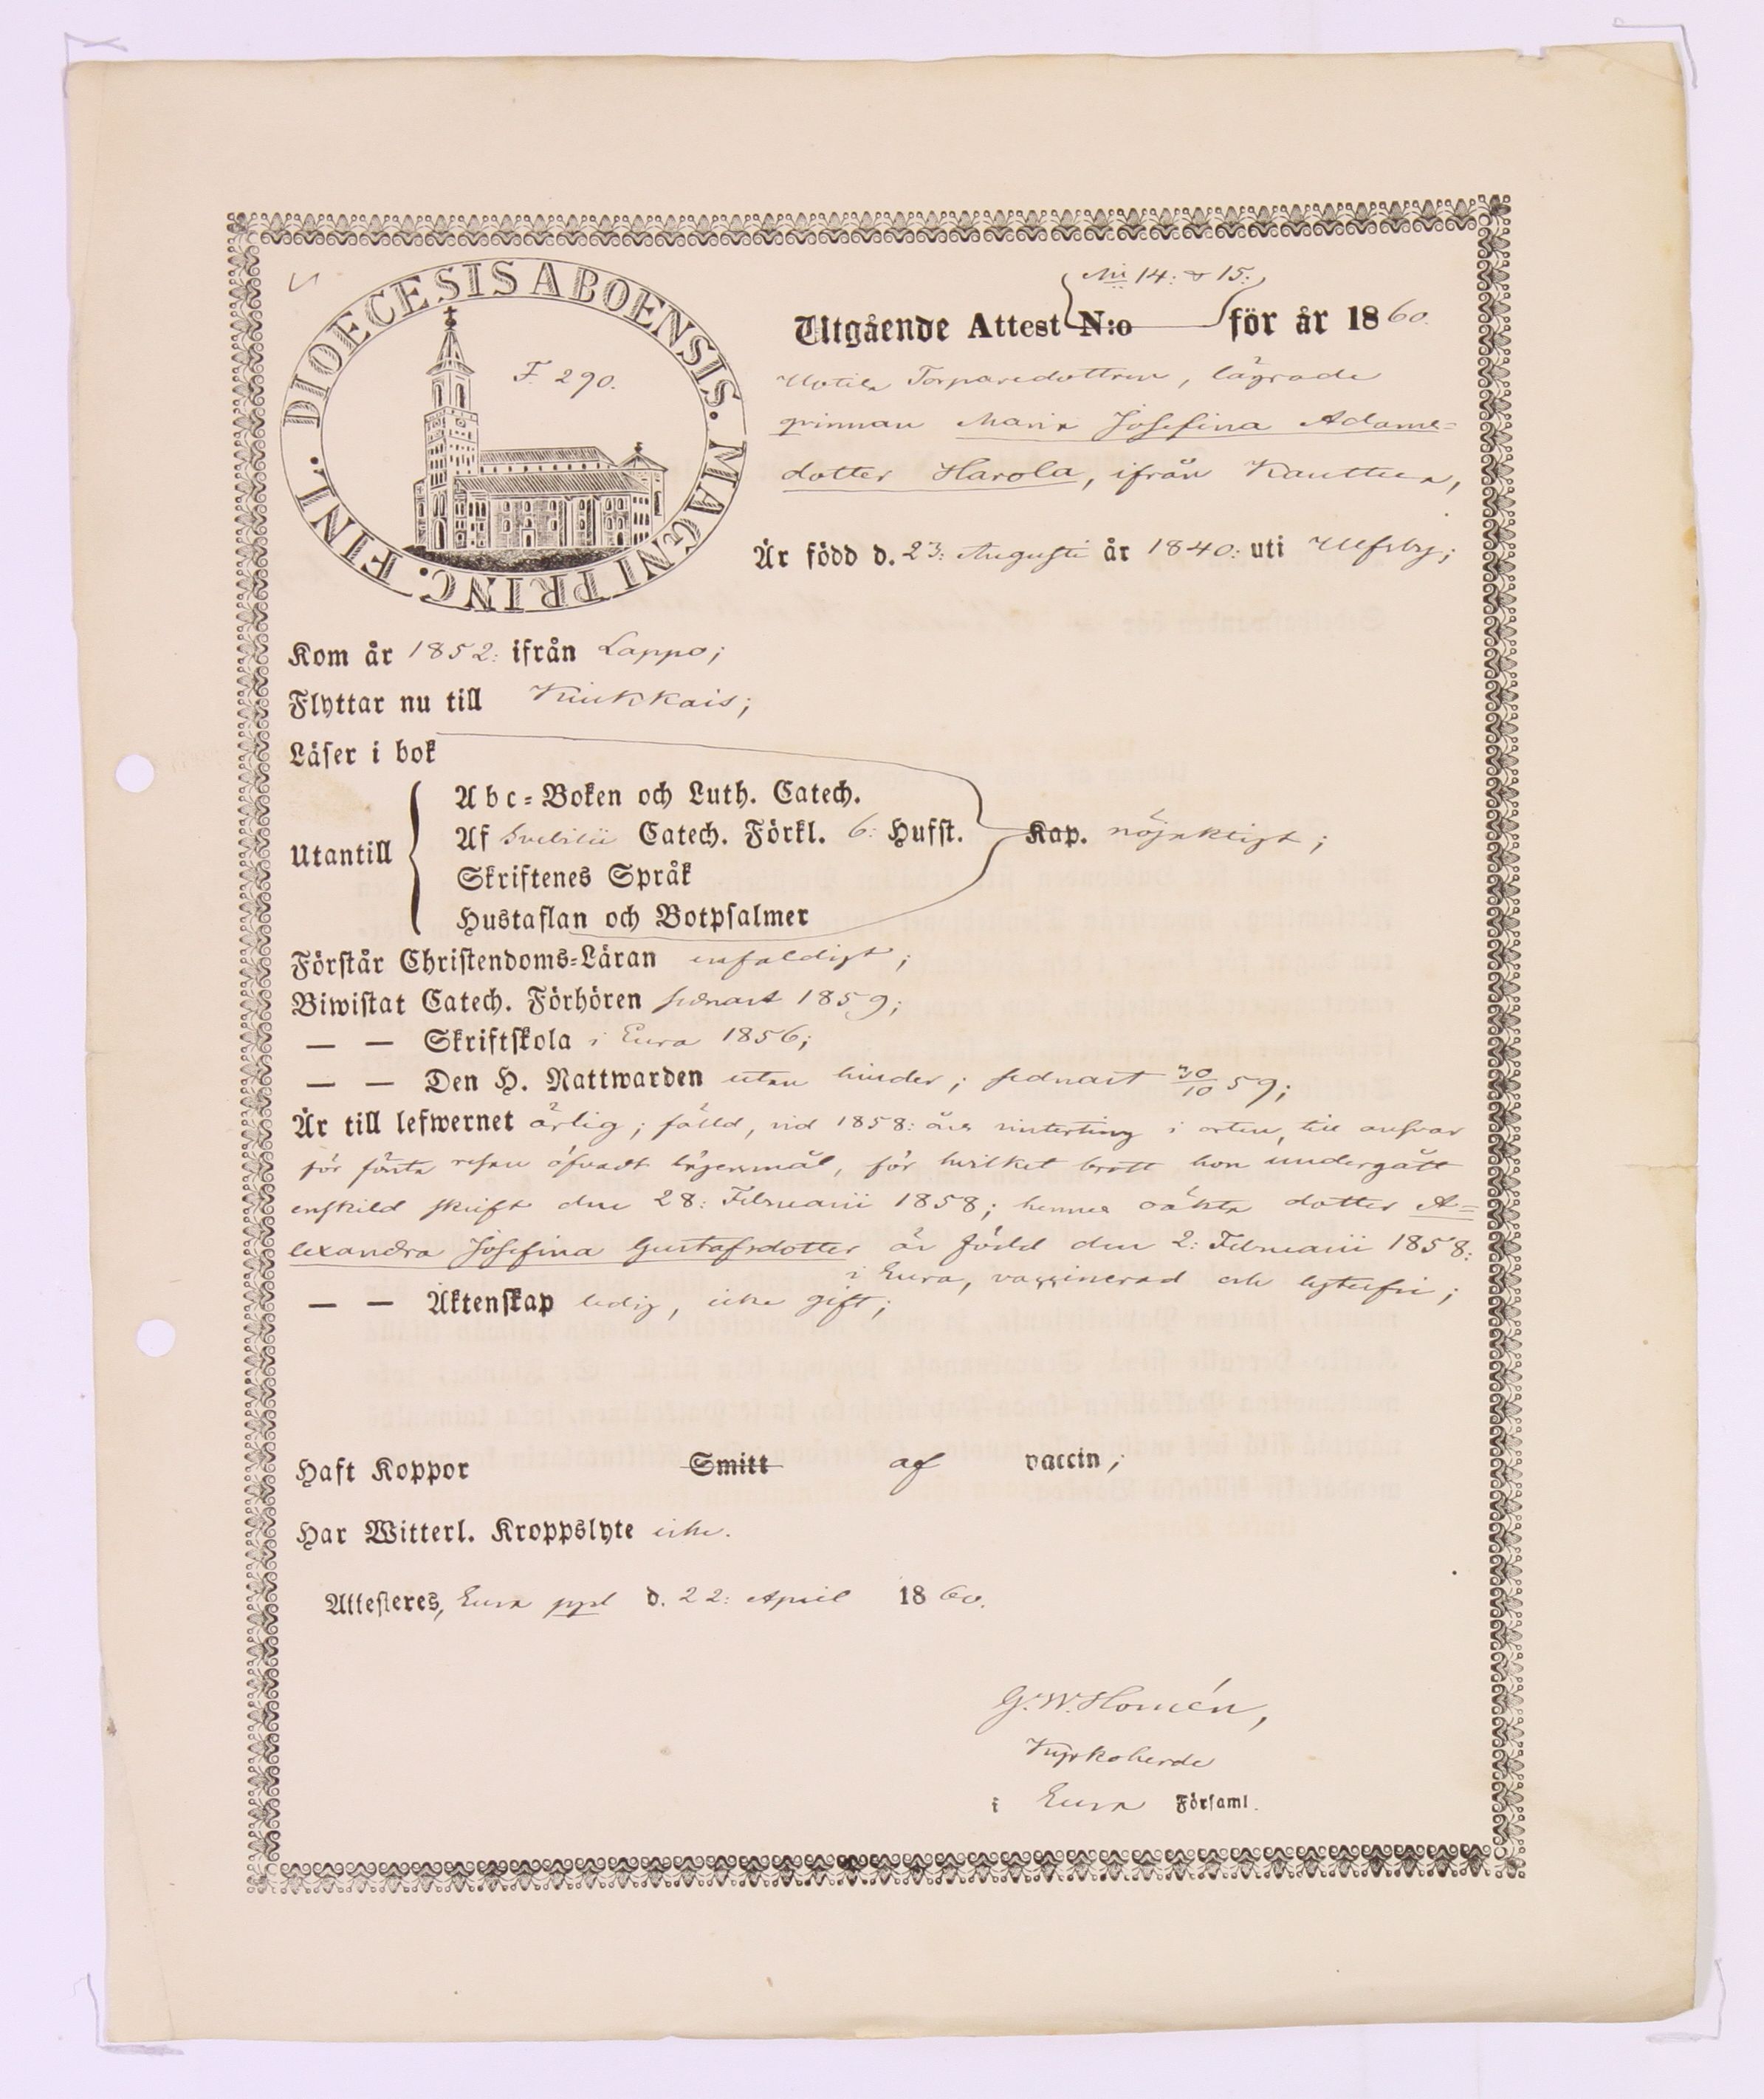 DIOECESIS ABOENSIS. MAGNI PRINC. FINL.
F. 290.
N:is 14: & 15:
Utgående Attest N:o för år 1860.
Uotila Torparedottren, lägrade
qvinnan Maria Josefina Adams-
dotter Harola, ifrån Kauttua,
Är född d. 23: Augusti år 1840: uti Ulfsby;
Kom år 1852: ifrån Lappo;
Flyttar nu till Kiukkais;
Läser i bok
Utantill
Abc-Boken och Luth. Catech.
Af Svebilii Catech. Förkl. 6: Hufst. Kap. nöjaktigt;
Skriftenes Språk
Hustaflan och Botpsalmer
Förstår Christendoms-Läran enfaldigt;
Biwistat Catech. Förhören sednast 1859;
— — Skriftskola i Eura 1856;
— — Den H. Nattwarden utan hinder; sednast 30/10 59;
Är till lefwernet ärlig; fälld, vid 1858: års vinterting i orten, till ansvar
för första resan öfvadt lägersmål, för hvilket brott hon undergått
enskild skrift den 28: Februarii 1858; hennes oäkta dotter A-
lexandra Josefina Gustafsdotter är född den 2: Februarii 1858:
i Eura, vaccinerad och lytesfri;
— — Äktenskap ledig, icke gift;
Haft Koppor Smitt af vaccin;
Har Witterl. Kroppslyte icke.
Attesteres, Eura ppl d. 22: April 1860.
G. W. Homén,
Kyrkoherde
i Eura Församl.